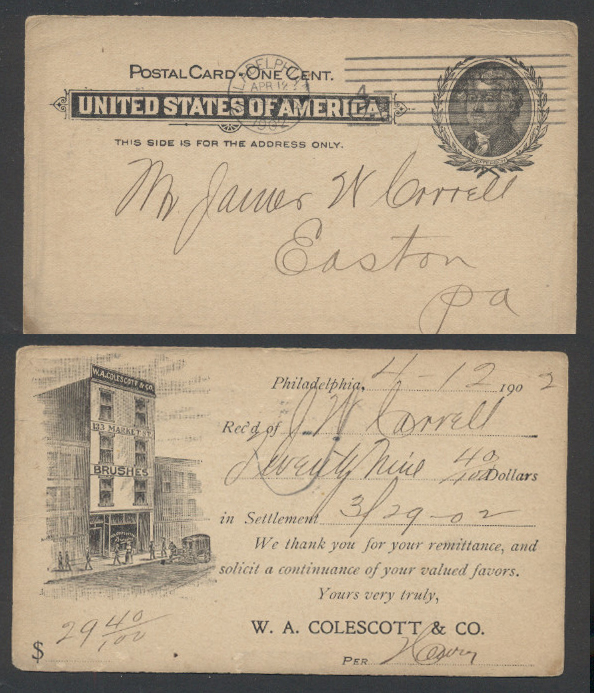 POSTAL CARD • ONE CENT.
UNITED STATES OF AMERICA.
PHILADELPHIA
APR 12
1902
4
THIS SIDE IS FOR THE ADDRESS ONLY.
Mr James W Correll
Easton
Pa
W. A. COLESCOTT & CO.
123 MARKET ST.
BRUSHES
Philadelphia, 4-12 1902
Rec'd of J W Correll
Twenty Nine 40/100 Dollars
in Settlement 3/29-02
We thank you for your remittance, and
solicit a continuance of your valued favors.
Yours very truly,
W. A. COLESCOTT & CO.
$ 29 40/100
PER Henry